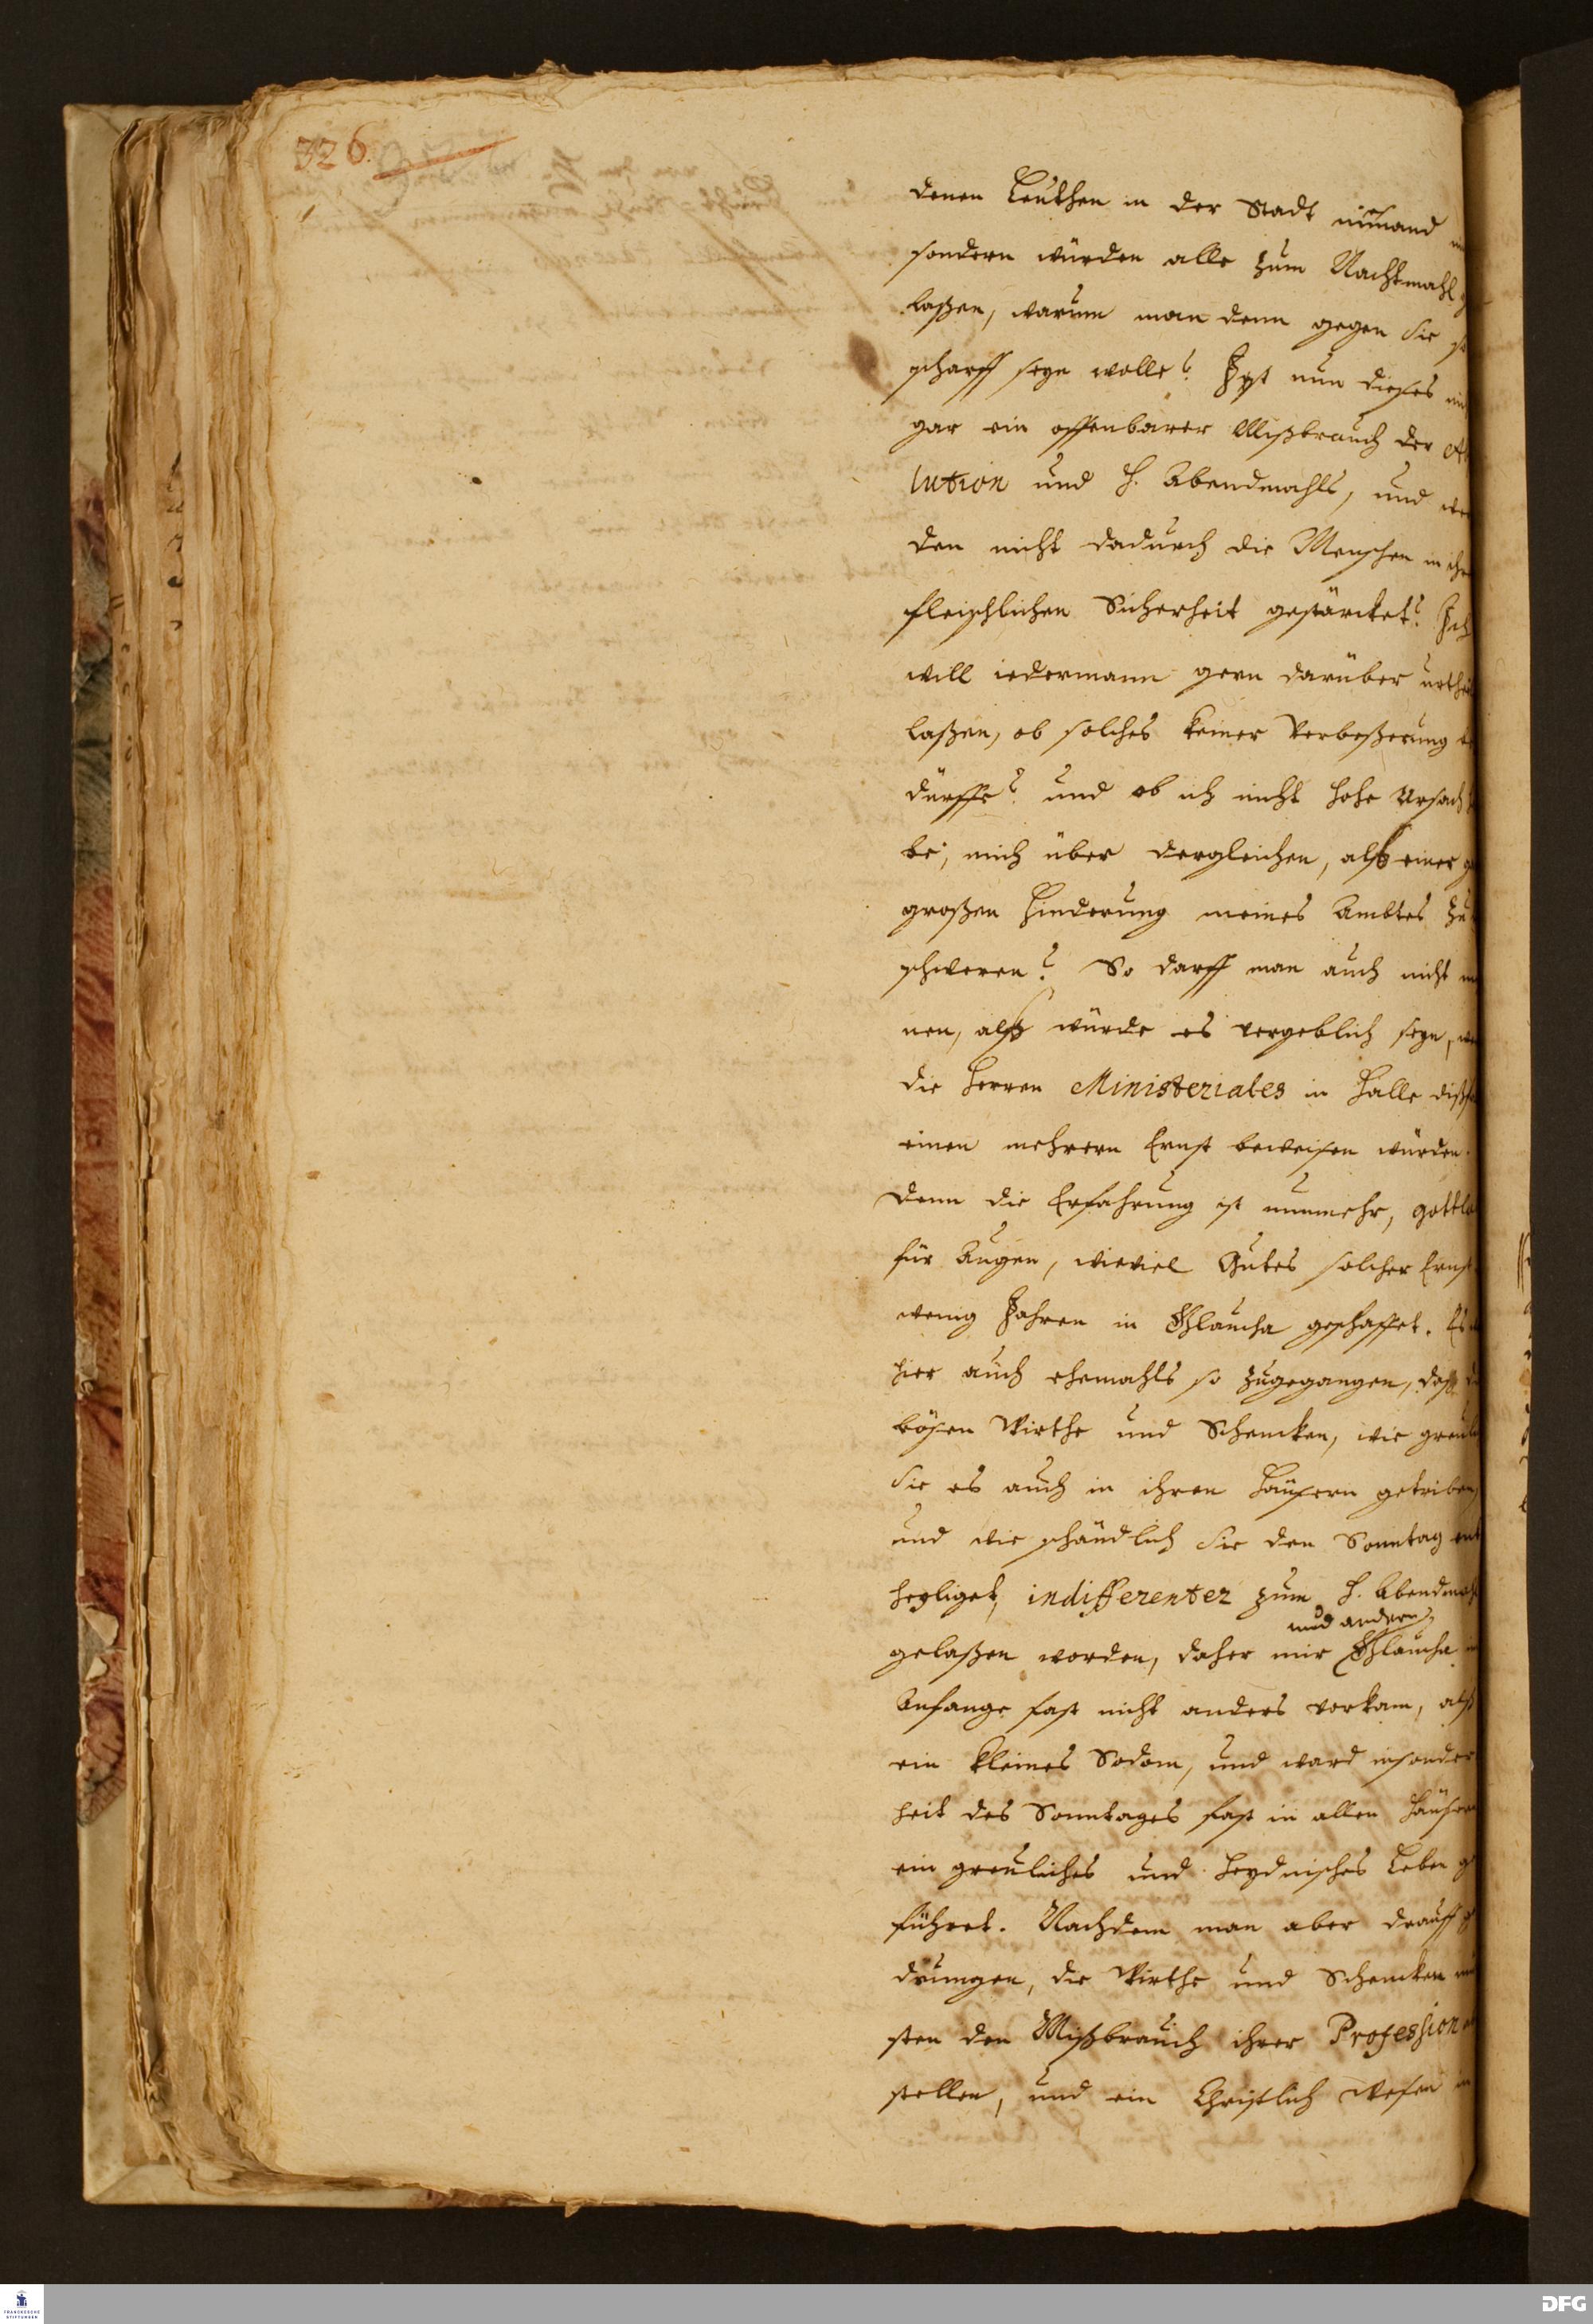 326.
denen Leuthen in der Stadt niemand
sondern würden alle zum Nachtmahl
laßen, warum man denn gegen Sie so
scharff seyn wolle? Ist nun dieses
gar ein offenbarer Mißbrauch der
lution und H. Abendmahls, und
den nicht dadurch die Menschen in
fleischlichen Sicherheit gestärcket? Ich
will iedermann gern darüber urthei
laßen, ob solches keiner Verbeßerung
dürffe? und ob ich nicht hohe Ursach
be, mich über dergleichen, alß einer
großen Hinderung meines Ambtes zu
schweren? So darff man auch nicht
nen, alß würde es vergeblich seyn,
die Herren Ministeriales in Halle
einen mehrern Ernst beweisen würden.
Denn die Erfahrung ist nunmehr, gottlo
für Augen, wieviel Gutes solcher Ernst
wenig Jahren in Glaucha geschaffet. Es
hier auch ehemahls so zugegangen, daß
bösen Wirthe und Schencken, wie greul
Sie es auch in ihren Häusern getrieben,
und wie schändlich Sie den Sonntag ent
heyliget, indifferenter zum H. Abendmahl
und andern
gelaßen worden, daher mir Glaucha
Anfange fast nicht anders vorkam, alß
ein kleines Sodom, und ward insonder
heit des Sonntages fast in allen Häusern
ein greuliches und Heydnisches Leben ge
führet. Nachdem man aber drauff ge
drungen, die Wirthe und Schencken
sten den Mißbrauch ihrer Profession
stellen, und ein Christlich Wesen
FRANCKESCHE
STIFTUNGEN
DFG